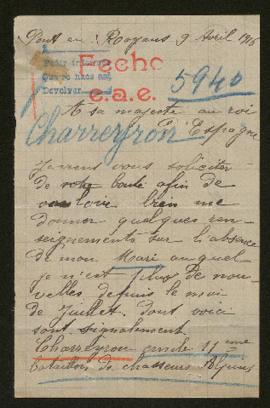 Pont en Royans 9 Avril 1916
Pecho
e.a.e.
Devolver
5940
A sa majesté au roi
Charreyron Espagne
Je viens vous soliciter
de votre bonté afin de
vouloir bien me
donner quelques ren-
seignements sur l'absence
de mon Mari auquel
je n'ai plus de nou-
velles depuis le moi
de Juillet. dont voici
sont signalement.
Charreyron emile 11 eme
bataillon de chasseurs Alpins